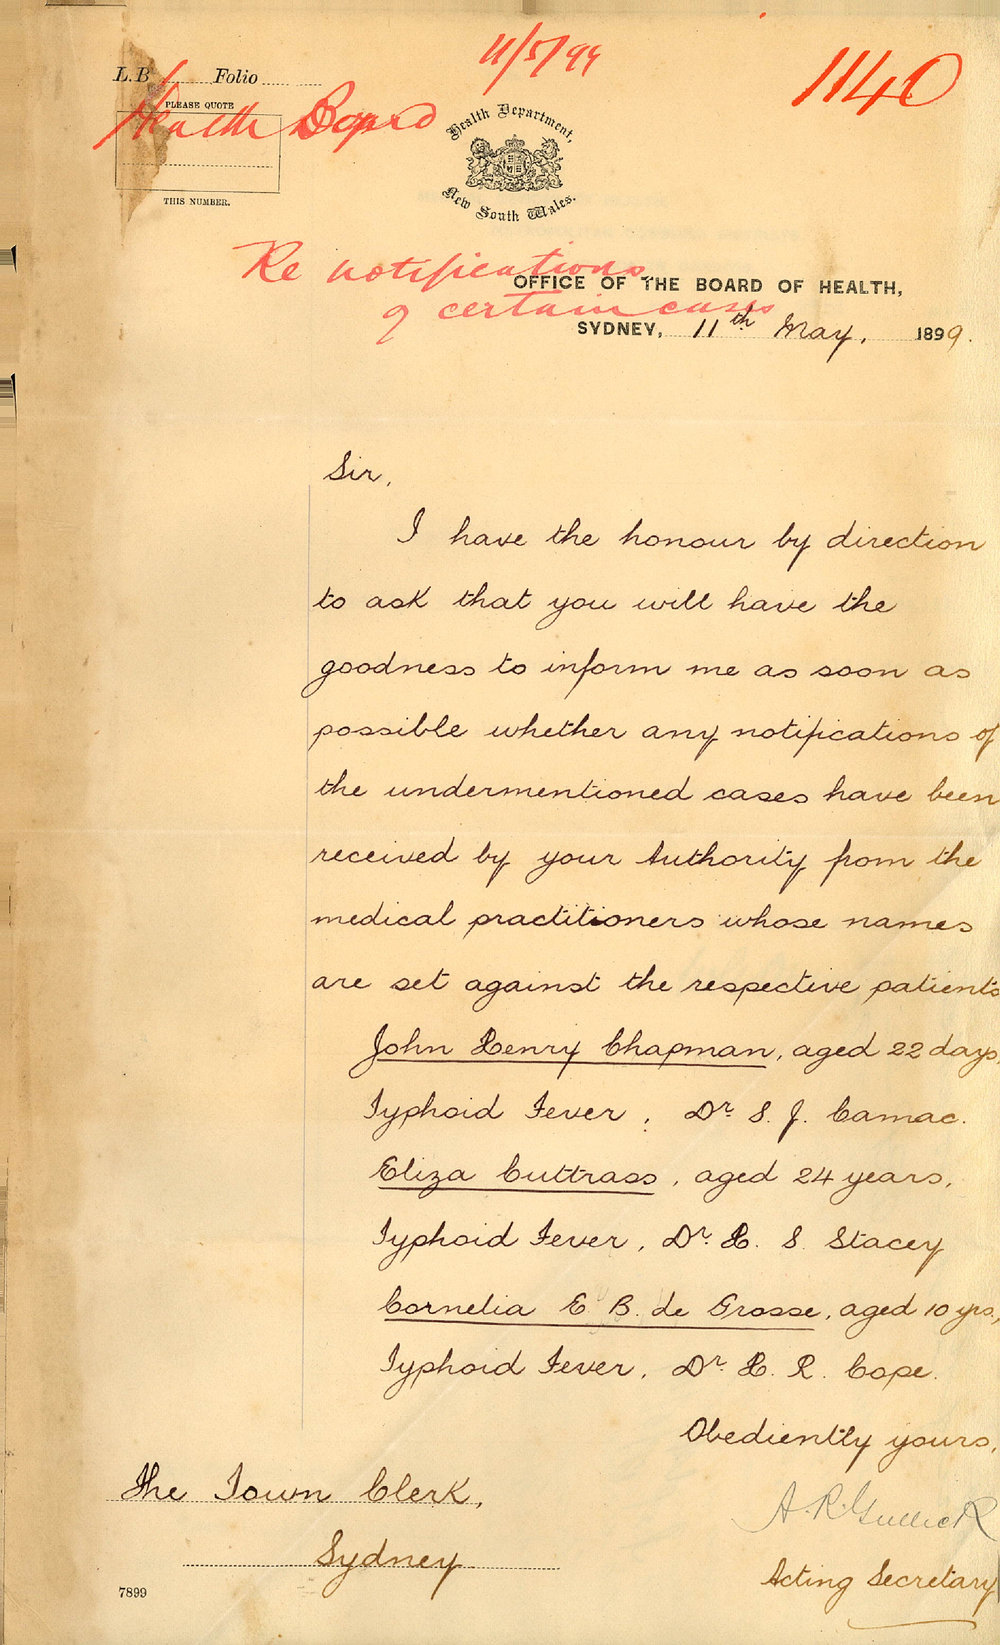 11/5/99
1140
L.B. Folio
PLEASE QUOTE
Health Board
THIS NUMBER.
Health Department,
New South Wales.
Re notifications
of certain cases
OFFICE OF THE BOARD OF HEALTH,
SYDNEY, 11th May, 1899.
Sir,
I have the honour by direction
to ask that you will have the
goodness to inform me as soon as
possible whether any notifications of
the undermentioned cases have been
received by your Authority from the
medical practitioners whose names
are set against the respective patients
John Henry Chapman, aged 22 days,
Typhoid Fever, Dr. S. J. Camac.
Eliza Cuttrass, aged 24 years,
Typhoid Fever, Dr. H. S. Stacey
Cornelia E. B. de Grosse, aged 10 yrs,
Typhoid Fever, Dr. H. R. Cope.
Obediently yours,
A. R. Gullick
Acting Secretary
The Town Clerk,
Sydney
7899